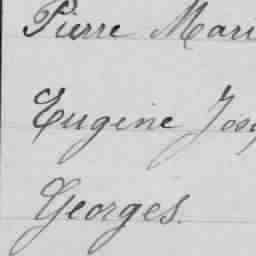 Pierre Mari
Eugène Jos
Georges.